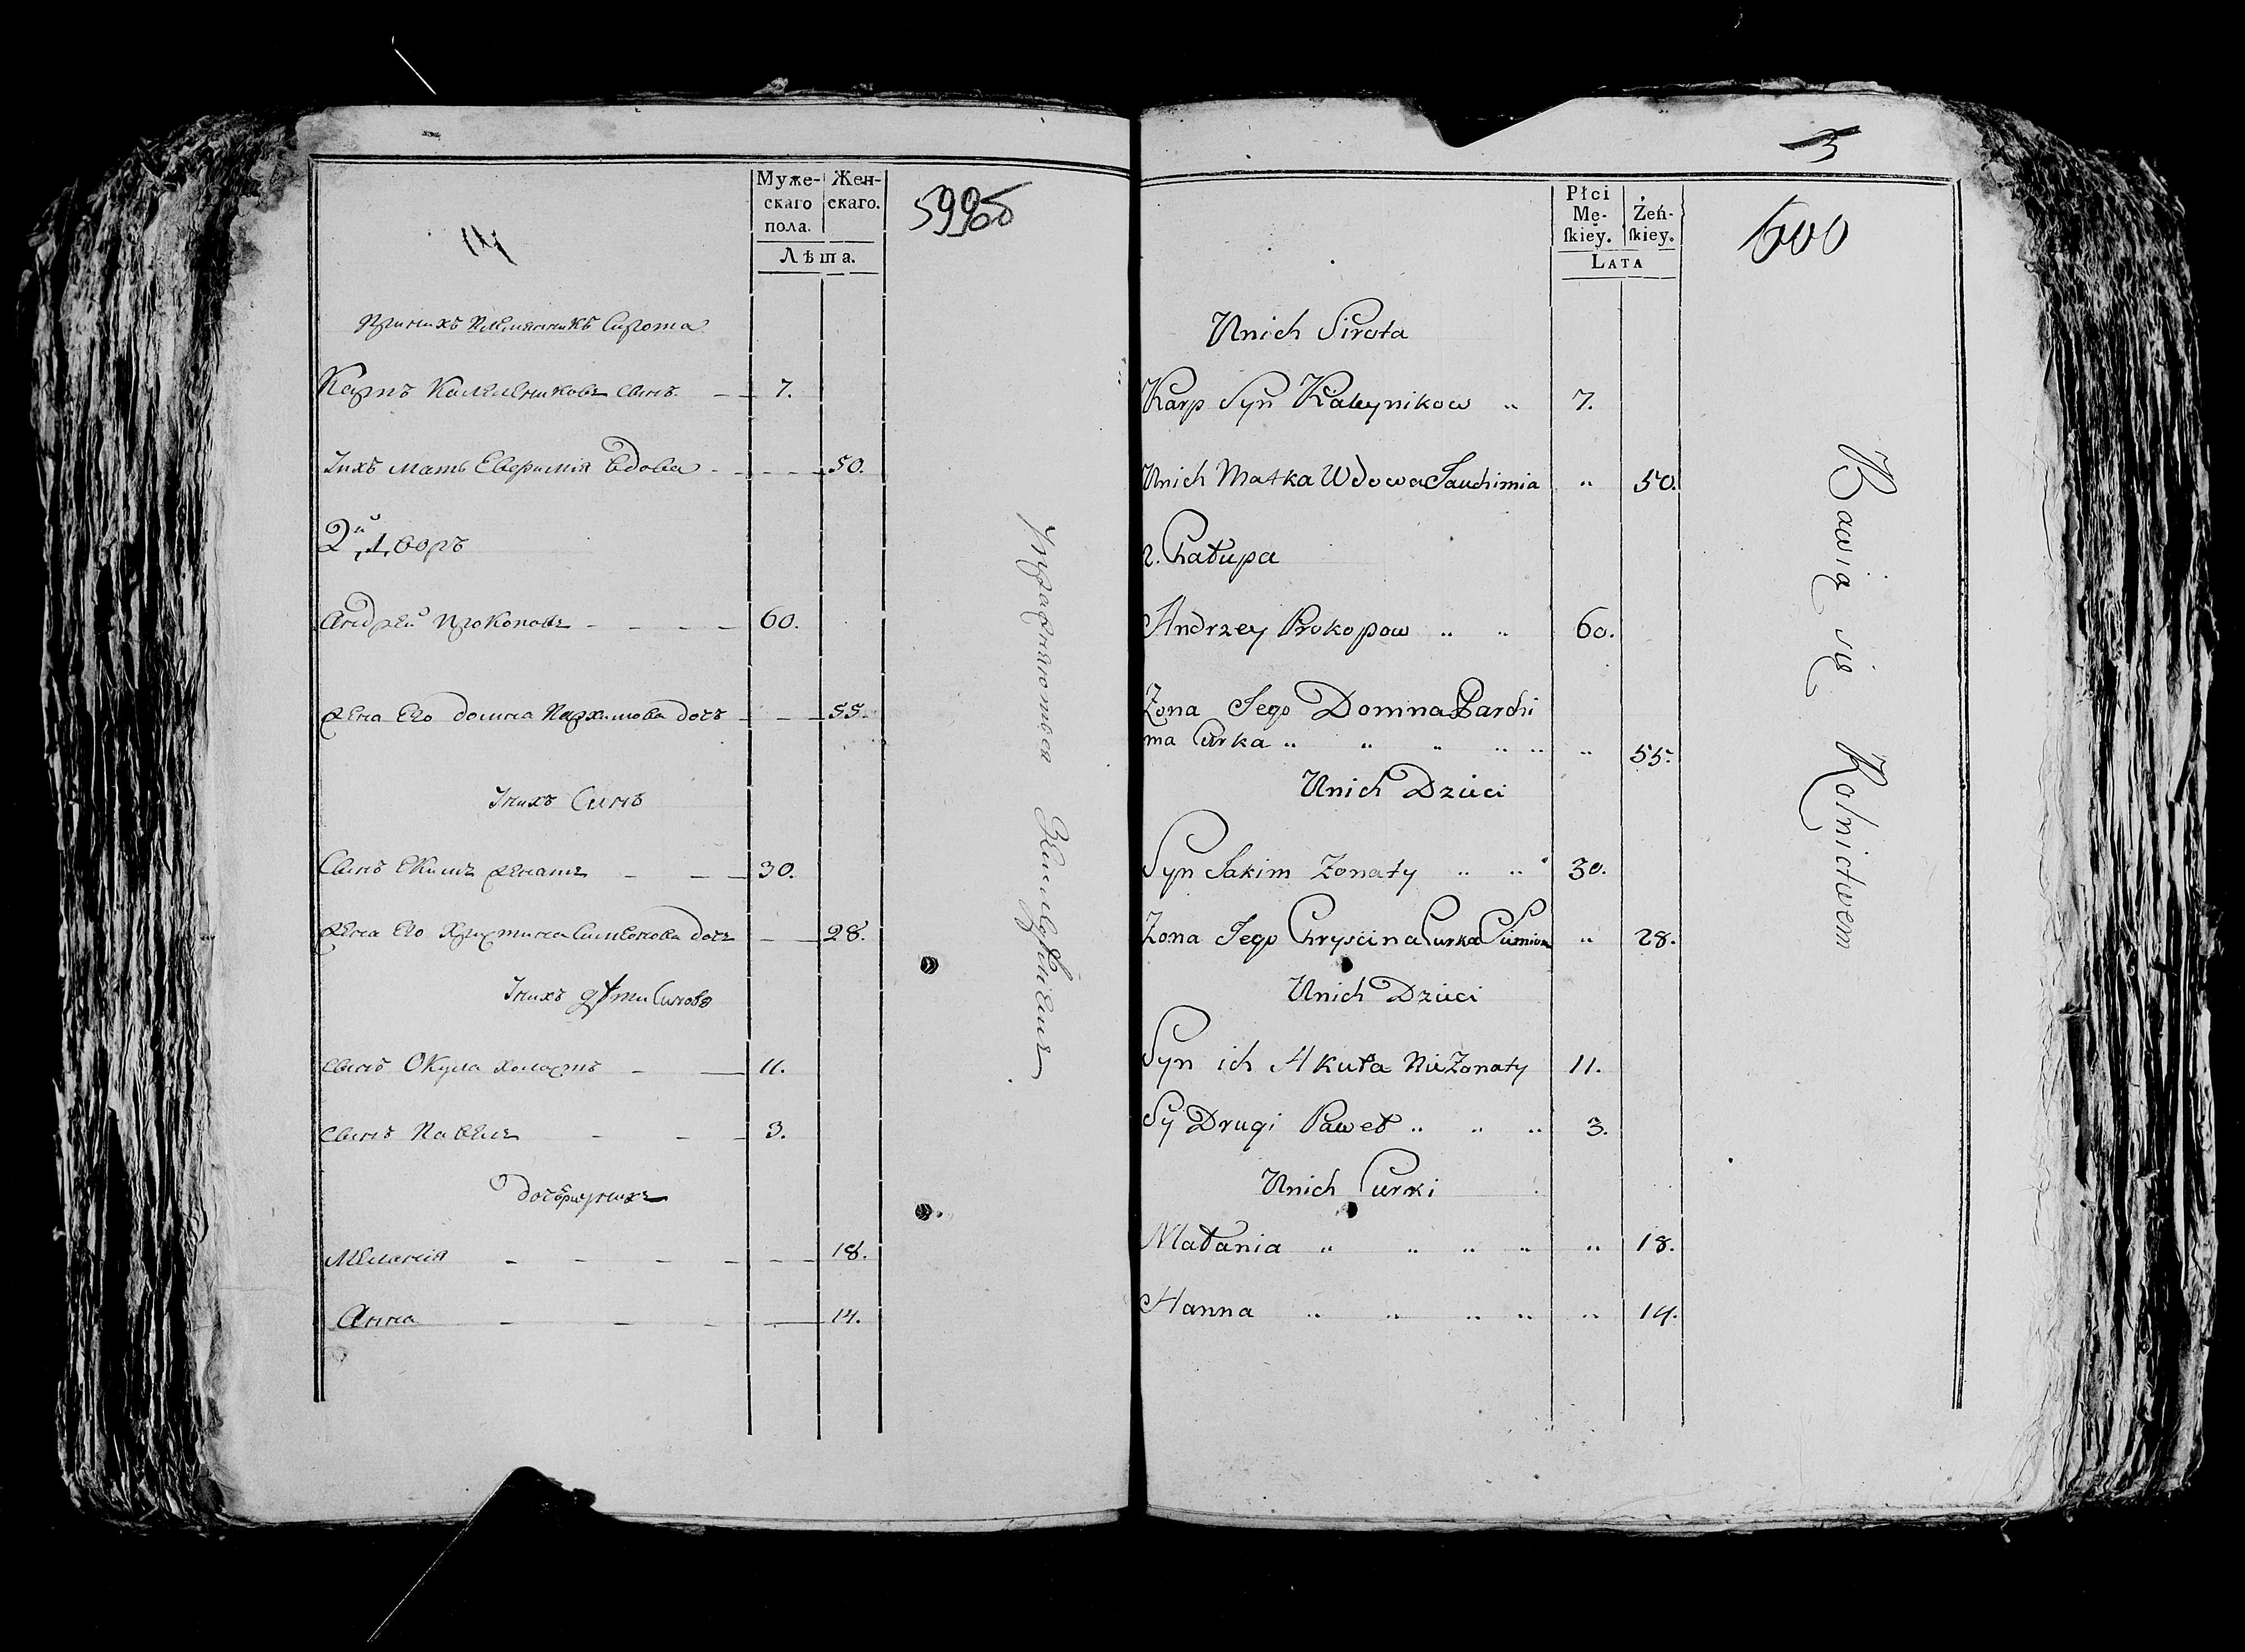 Муже-
скаго
пола.
Жен-
скаго.
Лѣта.
При нихъ племянникъ сирота
Карпъ Калениковъ сынъ. 7.
Ихъ мать Евфимия вдова 50.
2й дворъ
Андрей Прокоповъ 60.
Жена Его домна Пархимова дочь 55.
У нихъ Сынъ
Сынъ Екимъ женатъ 30.
Жена Его Христина Симеонова дочь 28.
У нихъ дѣти Сынове
сынъ Окула холостъ 11.
сынъ Павелъ 3.
дочери у нихъ
Мелания 18.
Анна 14.
Упражняются Земледѣлиемъ
3
600
Płci
Mę-
skiey.
Żeń-
skiey.
LATA
Unich Sirota
Karp Syn Kaleynikow 7.
Unich Matka Wdowa Jauchimia 50.
2. Chałupa
Andrzey Prokopow 60.
Zona Jego Domna Parchi
ma Curka 55.
Unich Dzieci
Syn Jakim Zonaty 30.
Zona Jego Chryscina Curka Simiona 28.
Unich Dzieci
Syn ich Akuła NieZonaty 11.
Sy Drugi Paweł 3.
Unich Curki
Małania 18.
Hanna 14.
Bawią się Rolnictwem